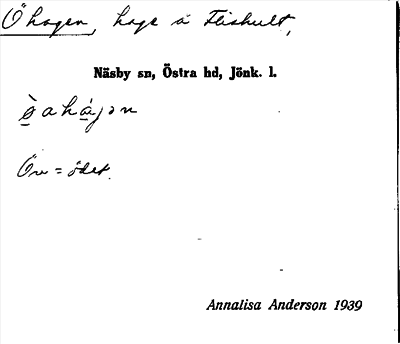 Öhagen, hage å Flishult,
Näsby sn, Östra hd, Jönk. l.
Ön = ödet.
Annalisa Anderson 1939